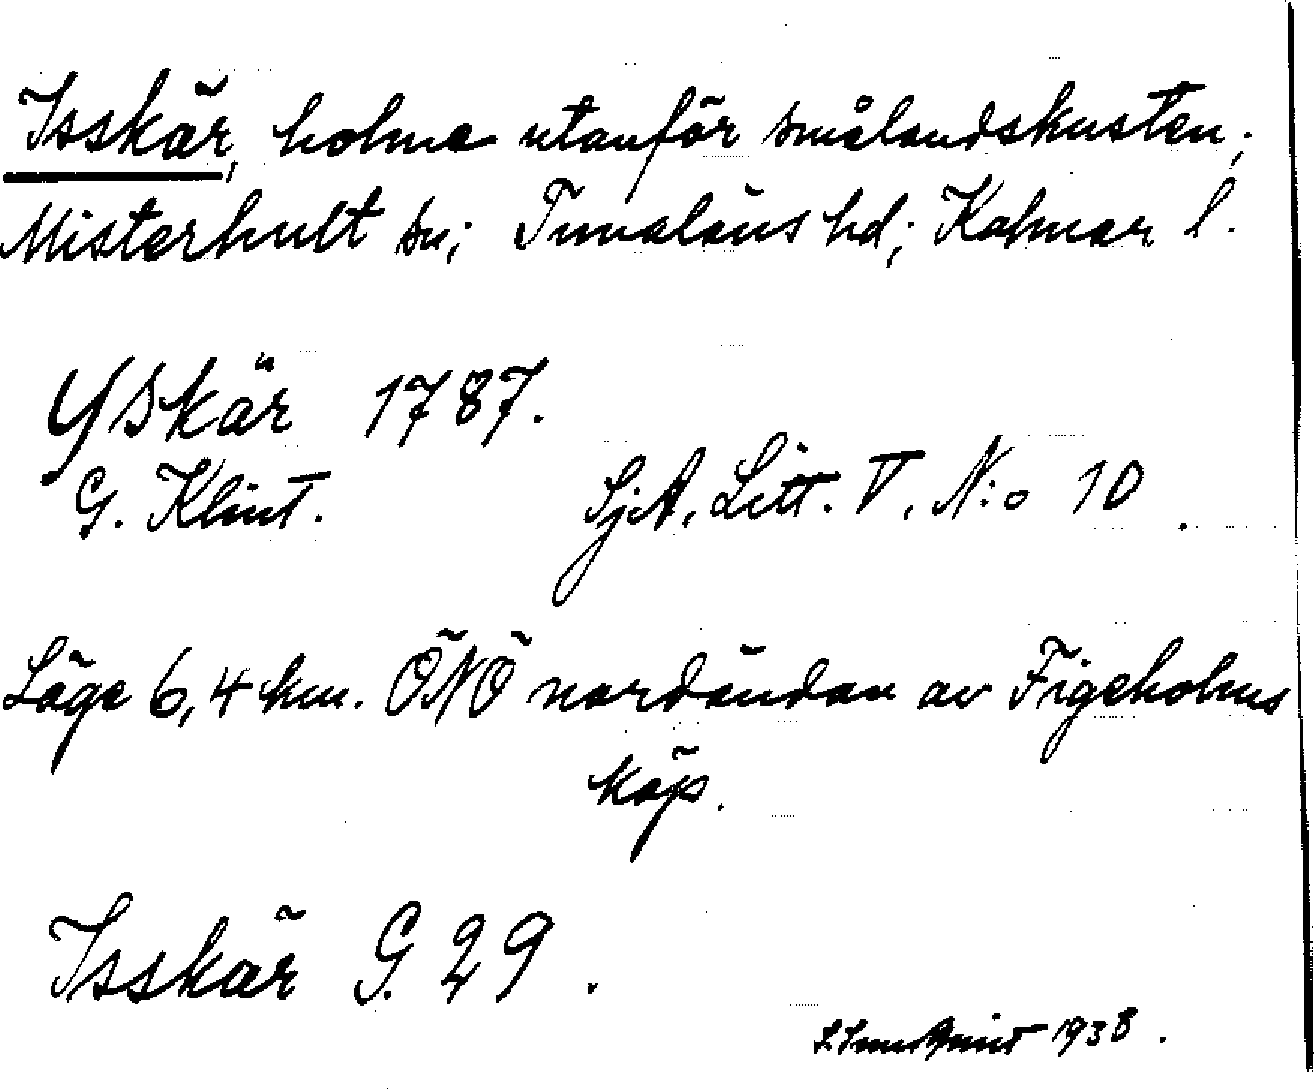 Isskär, holme utanför smålandskusten;
Misterhult sn; Tunaläns hd; Kalmar l.
Yskär 1787.
G. Klint. SjA, Litt. V, N:o 10.
Läge 6,4 km. ÖNÖ nordändan av Figeholms
köp.
Isskär G. 29.
1938.